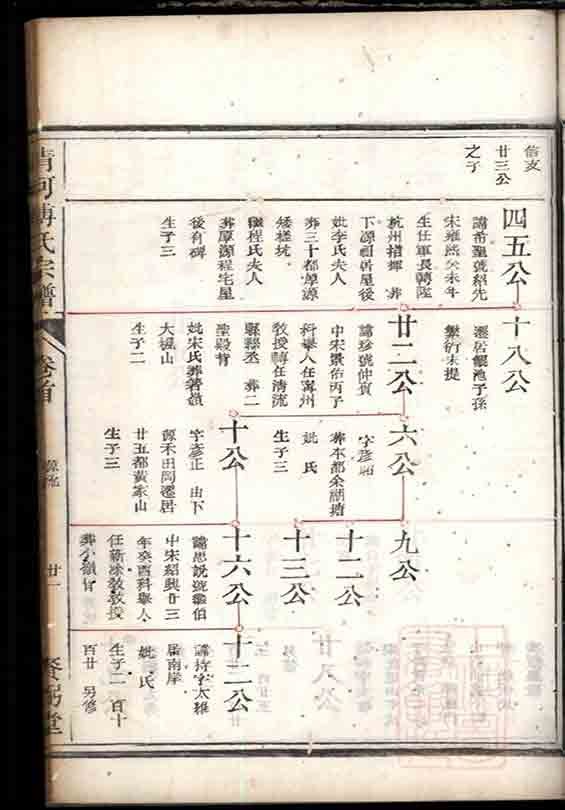 信支
廿三公
之子
四五公
諱希聖號紹先
宋雍熙癸未年
生任軍長轉陞
杭州指揮 葬
下源祖居屋後
妣李氏夫人
葬三十都厚源
矮槎坑
繼程氏夫人
葬厚源程宅屋
後有碑
生子三
十八公
遷居饒池子孫
繁衍未提
廿二公
諱珍號仲賓
中宋景佑丙子
科舉人任蓆州
教授轉任清流
縣縣丞 葬二
聖殿背
妣宋氏葬箬嶺
大楓山
生子二
六公
字彥昭
葬本都余湖塘
妣 氏
生子三
十公
字彥正 由下
源禾田岡遷居
廿五都黃家山
生子三
九公
十二公
十三公
十六公
諱思說號繼伯
中宋紹興廿三
年癸酉科舉人
任蘄凃敎敎授
葬小嶺背
十二公
諱持字太維
居南岸
妣 氏
生子二 百十
百廿 另修
清河傅氏宗譜
卷首
廿一